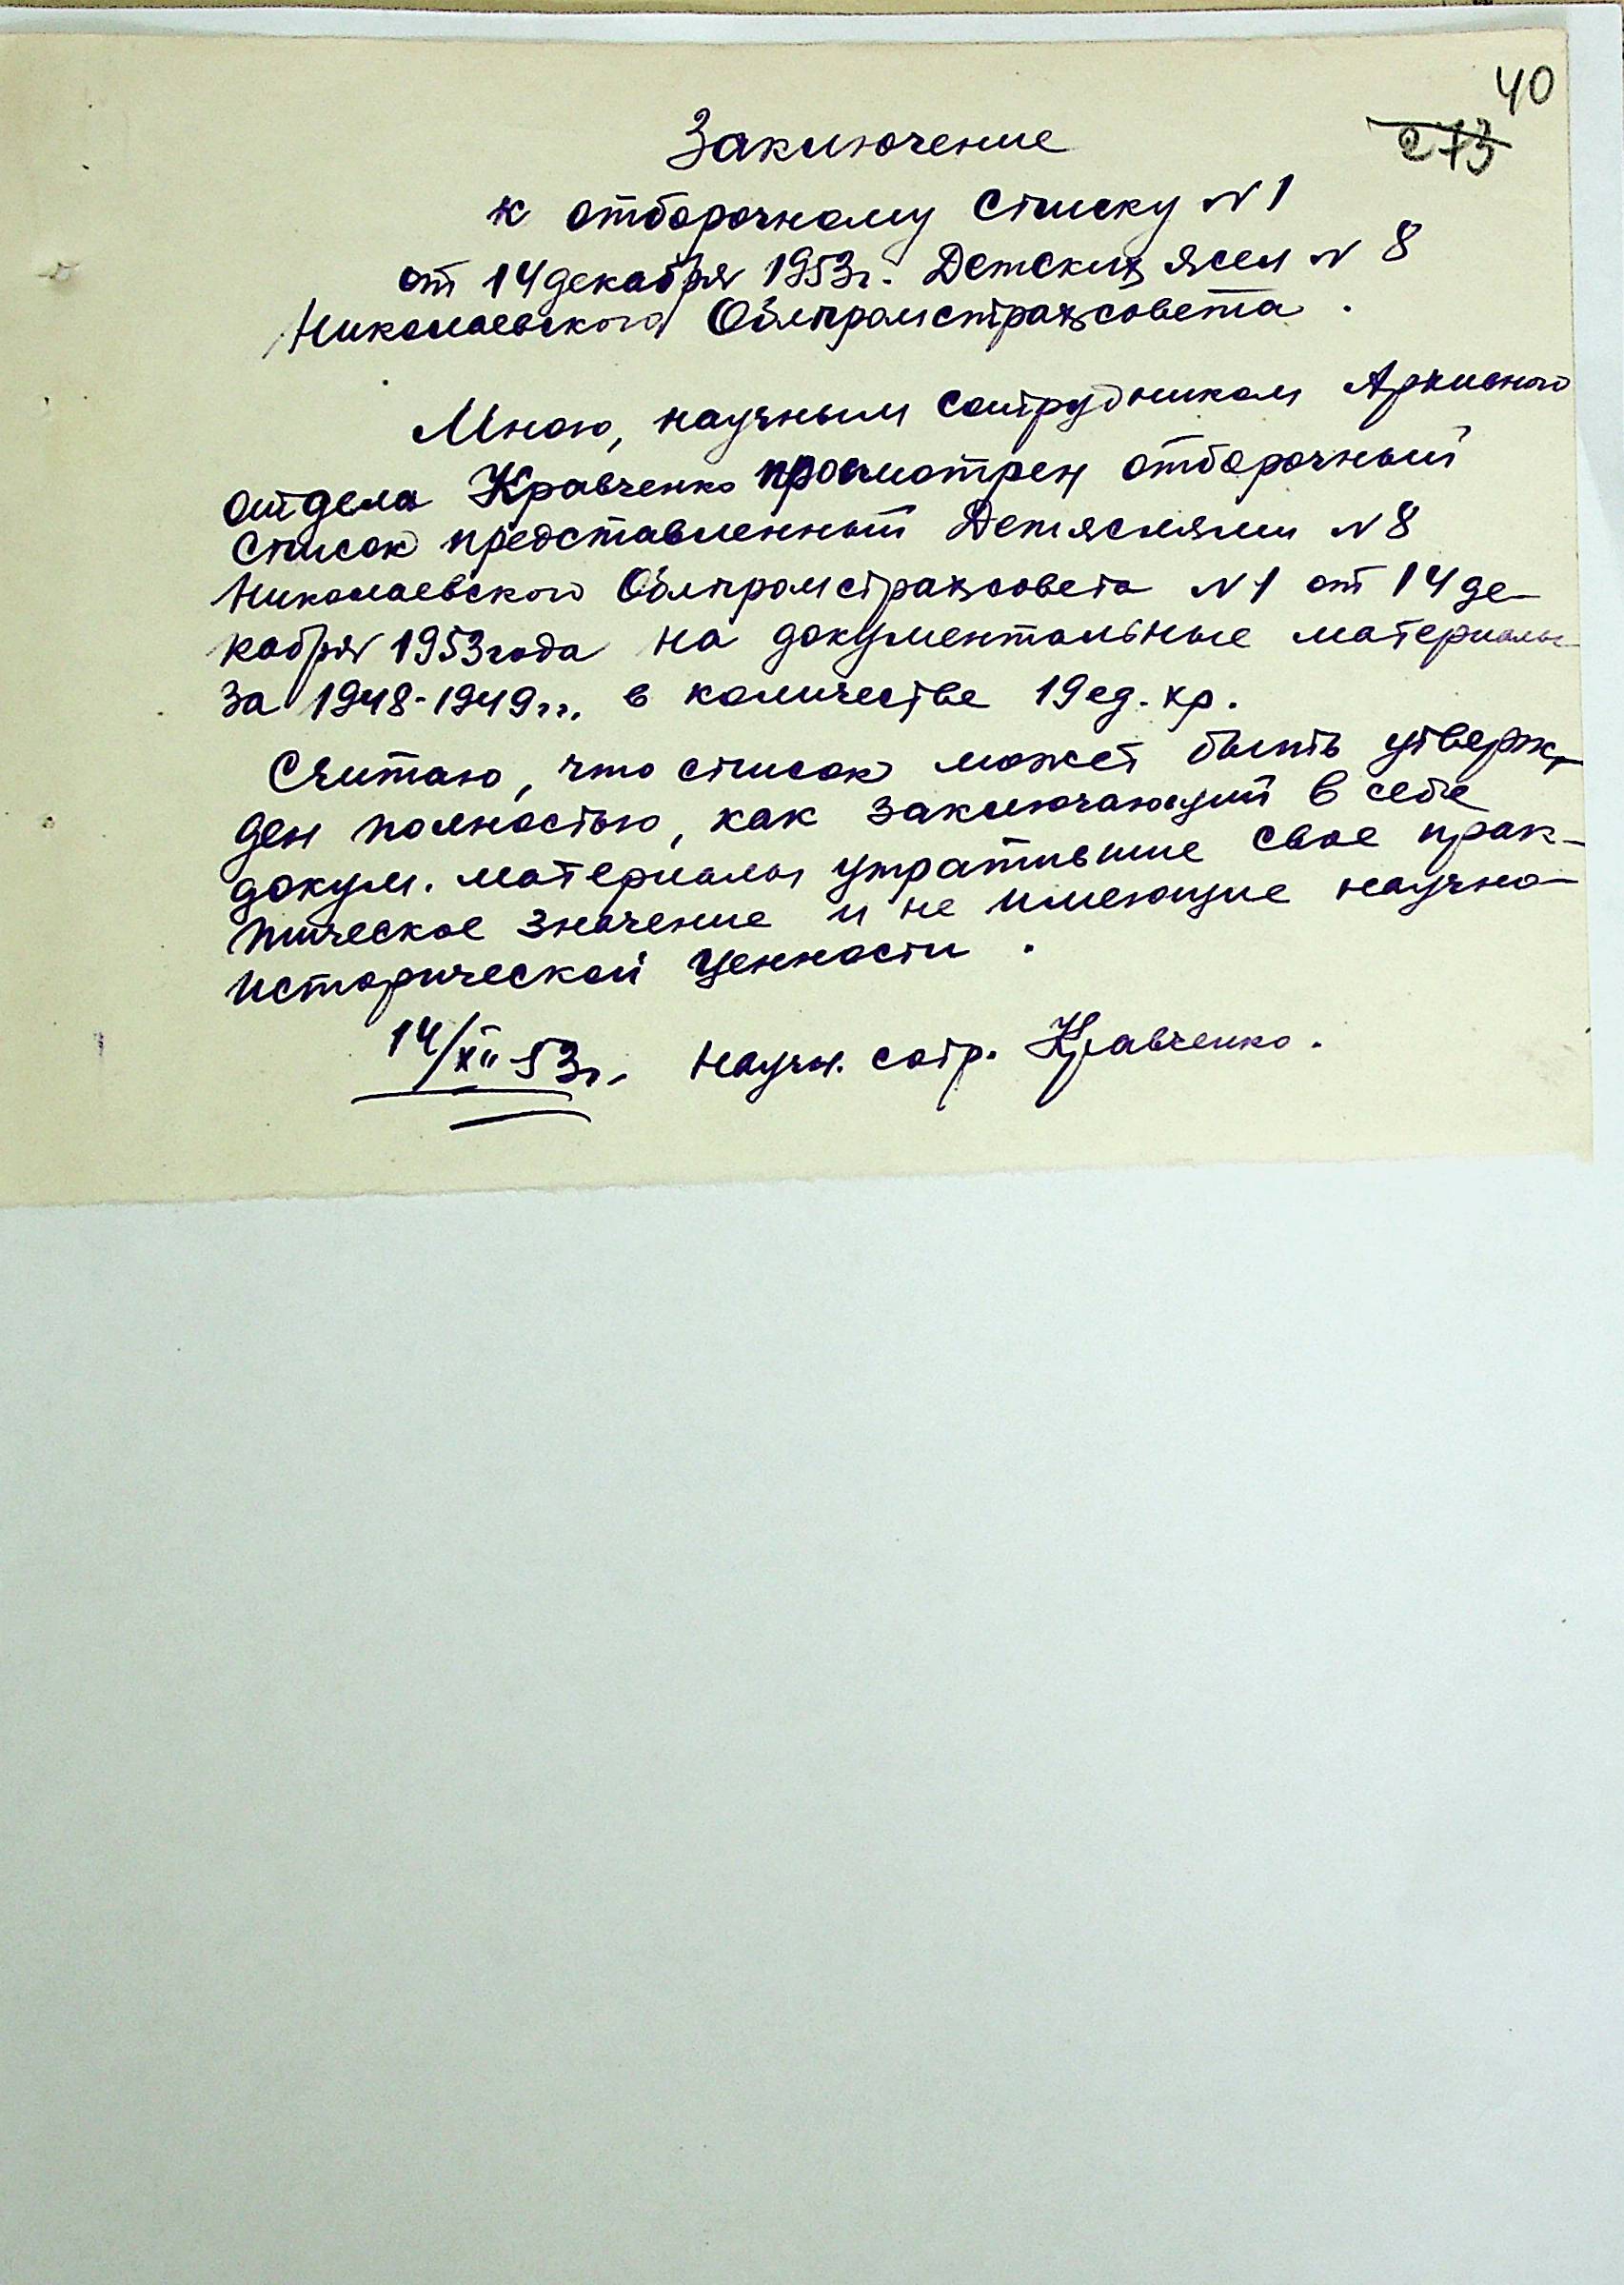 40
273
Заключение
к отборочному списку N 1
от 14 декабря 1953г. Детских ясел N 8
Николаевского Облпромстрахсовета.
Мною, научным сотрудником Архивного
отдела Кравченко просмотрен отборочный
список представленный Детяслями N 8
Николаевского Облпромстрахсовета N 1 от 14 де-
кабря 1953 года на документальные материалы
за 1948-1949 гг. в количестве 19 ед. хр.
Считаю, что список может быть утверж-
ден полностью, как заключающий в себе
докум. материалы утратившие свое прак-
тическое значение и не имеющие научно-
исторической ценности.
14/XII-53г. Научн. сотр. Кравченко.